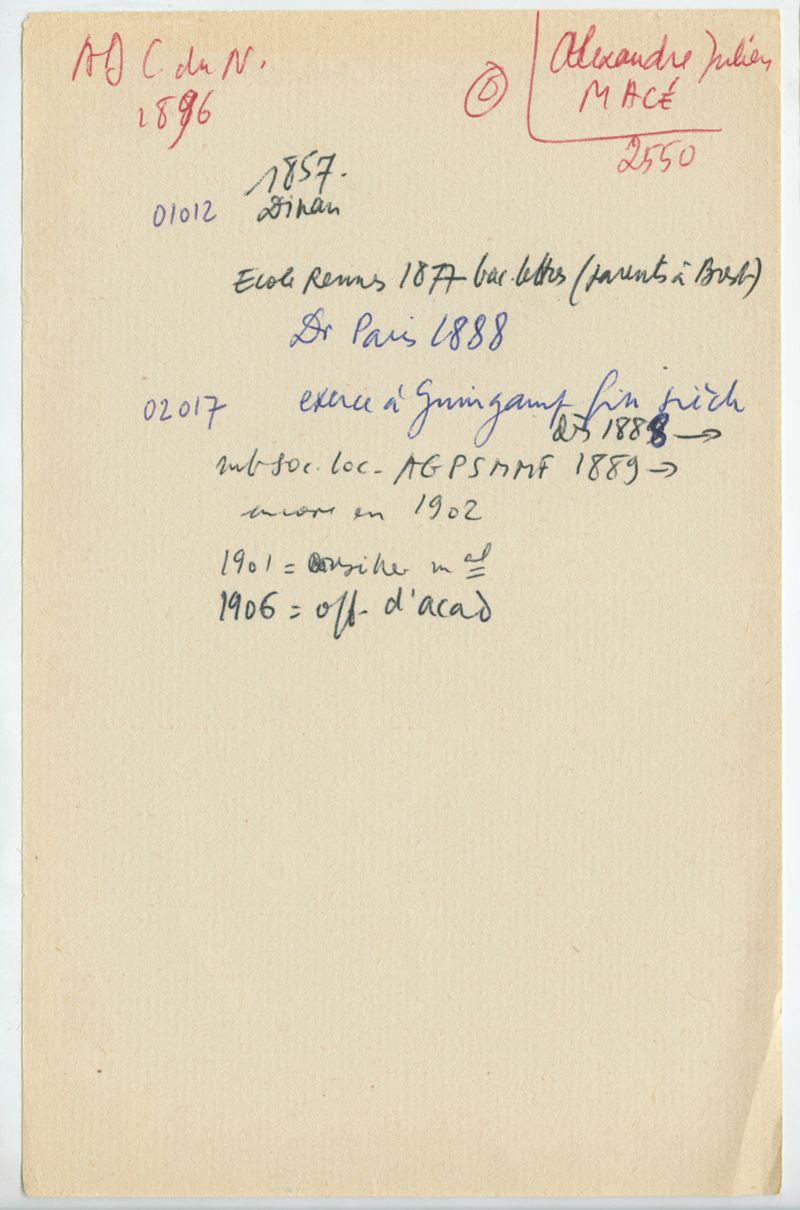 AD C. du N.
1896
D
Alexandre Julien
MACÉ
2550
1857.
01012 Dinan
Ecole Rennes 1877 bac. lettres (parents à Brest)
Dr Paris 1888
02017 exerce à Guingamp fin siècle
dès 1888 →
mb soc. loc. AGPSMMF 1889 →
encore en 1902
1901 = conseiller mal
1906 = off. d'acad